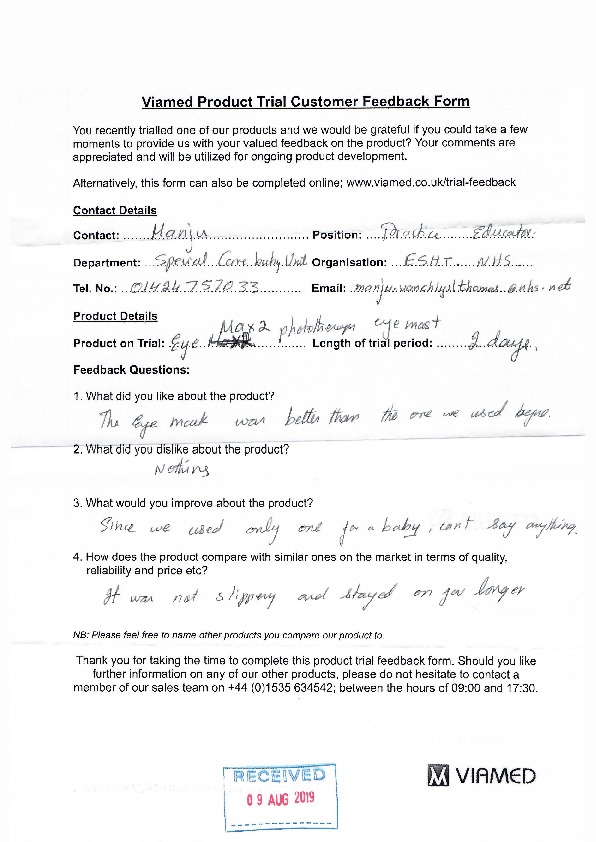 Viamed Product Trial Customer Feedback Form
You recently trialled one of our products and we would be grateful if you could take a few
moments to provide us with your valued feedback on the product? Your comments are
appreciated and will be utilized for ongoing product development.
Alternatively, this form can also be completed online; www.viamed.co.uk/trial-feedback
Contact Details
Contact: Manju Position: Practice Educator
Department: Special Care baby Unit Organisation: ESHT NHS
Tel. No.: 01424757033 Email:
Product Details
Max 2 phototherapy eye mast
Product on Trial: Eye Length of trial period: 2 days,
Feedback Questions:
1. What did you like about the product?
The Eye mask was better than the one we used before.
2. What did you dislike about the product?
Nothing
3. What would you improve about the product?
Since we used only one for a baby, cant say anything.
4. How does the product compare with similar ones on the market in terms of quality,
reliability and price etc?
It was not slippery and stayed on for longer
NB: Please feel free to name other products you compare our product to.
Thank you for taking the time to complete this product trial feedback form. Should you like
further information on any of our other products, please do not hesitate to contact a
member of our sales team on +44 (0)1535 634542; between the hours of 09:00 and 17:30.
RECEIVED
09 AUG 2019
VIAMED